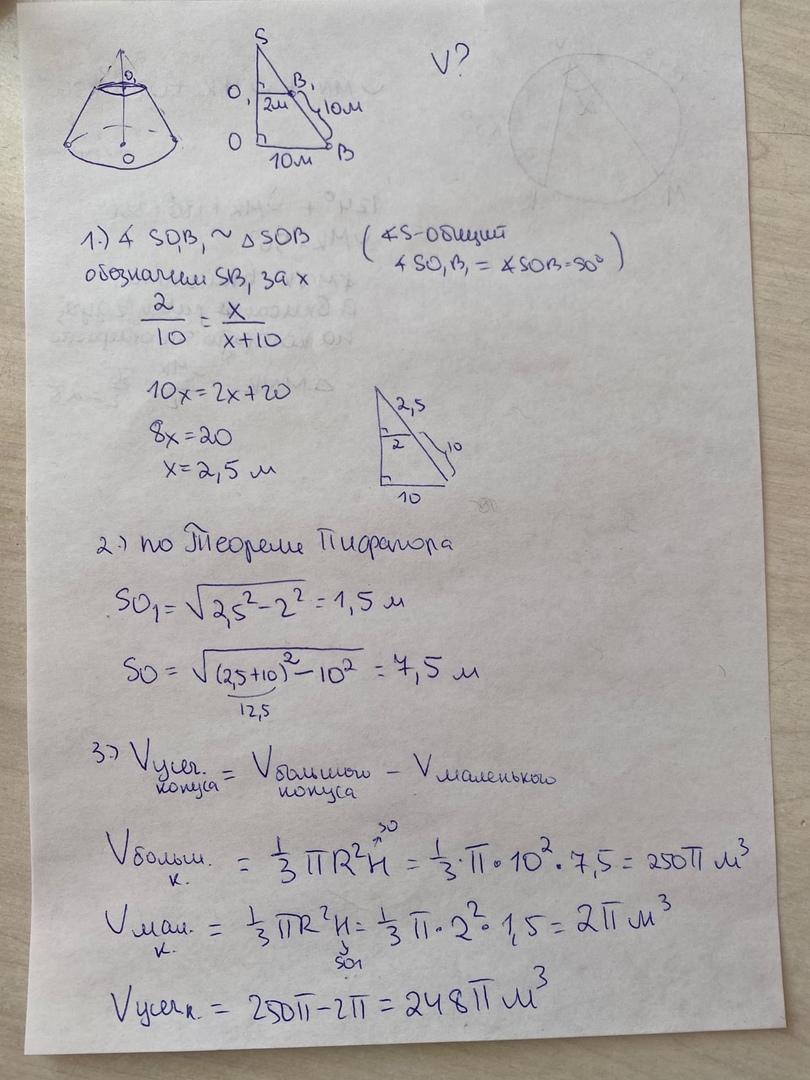 V?
S
O₁ 2м B₁ 10м
O 10м B
O₁
O
1.) ∢ SO₁B₁ ~ △ SOB (∢S-общий
∢ SO₁B₁ = ∢SOB=90°)
обозначим SB₁ за x
2/10 = x/(x+10)
10x=2x+20
8x=20
x=2,5 м
2,5
2 10
10
2.) по Теореме Пифагора
SO₁ = √(2,5²-2²) = 1,5 м
SO = √((2,5+10)²-10²) = 7,5 м
12,5
3.) Vусеч. конуса = Vбольшого конуса - Vмаленького
SO
Vбольш. к. = 1/3 πR²H = 1/3·π·10²·7,5 = 250π м³
Vмал. к. = 1/3 πR²H = 1/3 π·2²·1,5 = 2π м³
SO1
Vусеч к. = 250π-2π = 248π м³